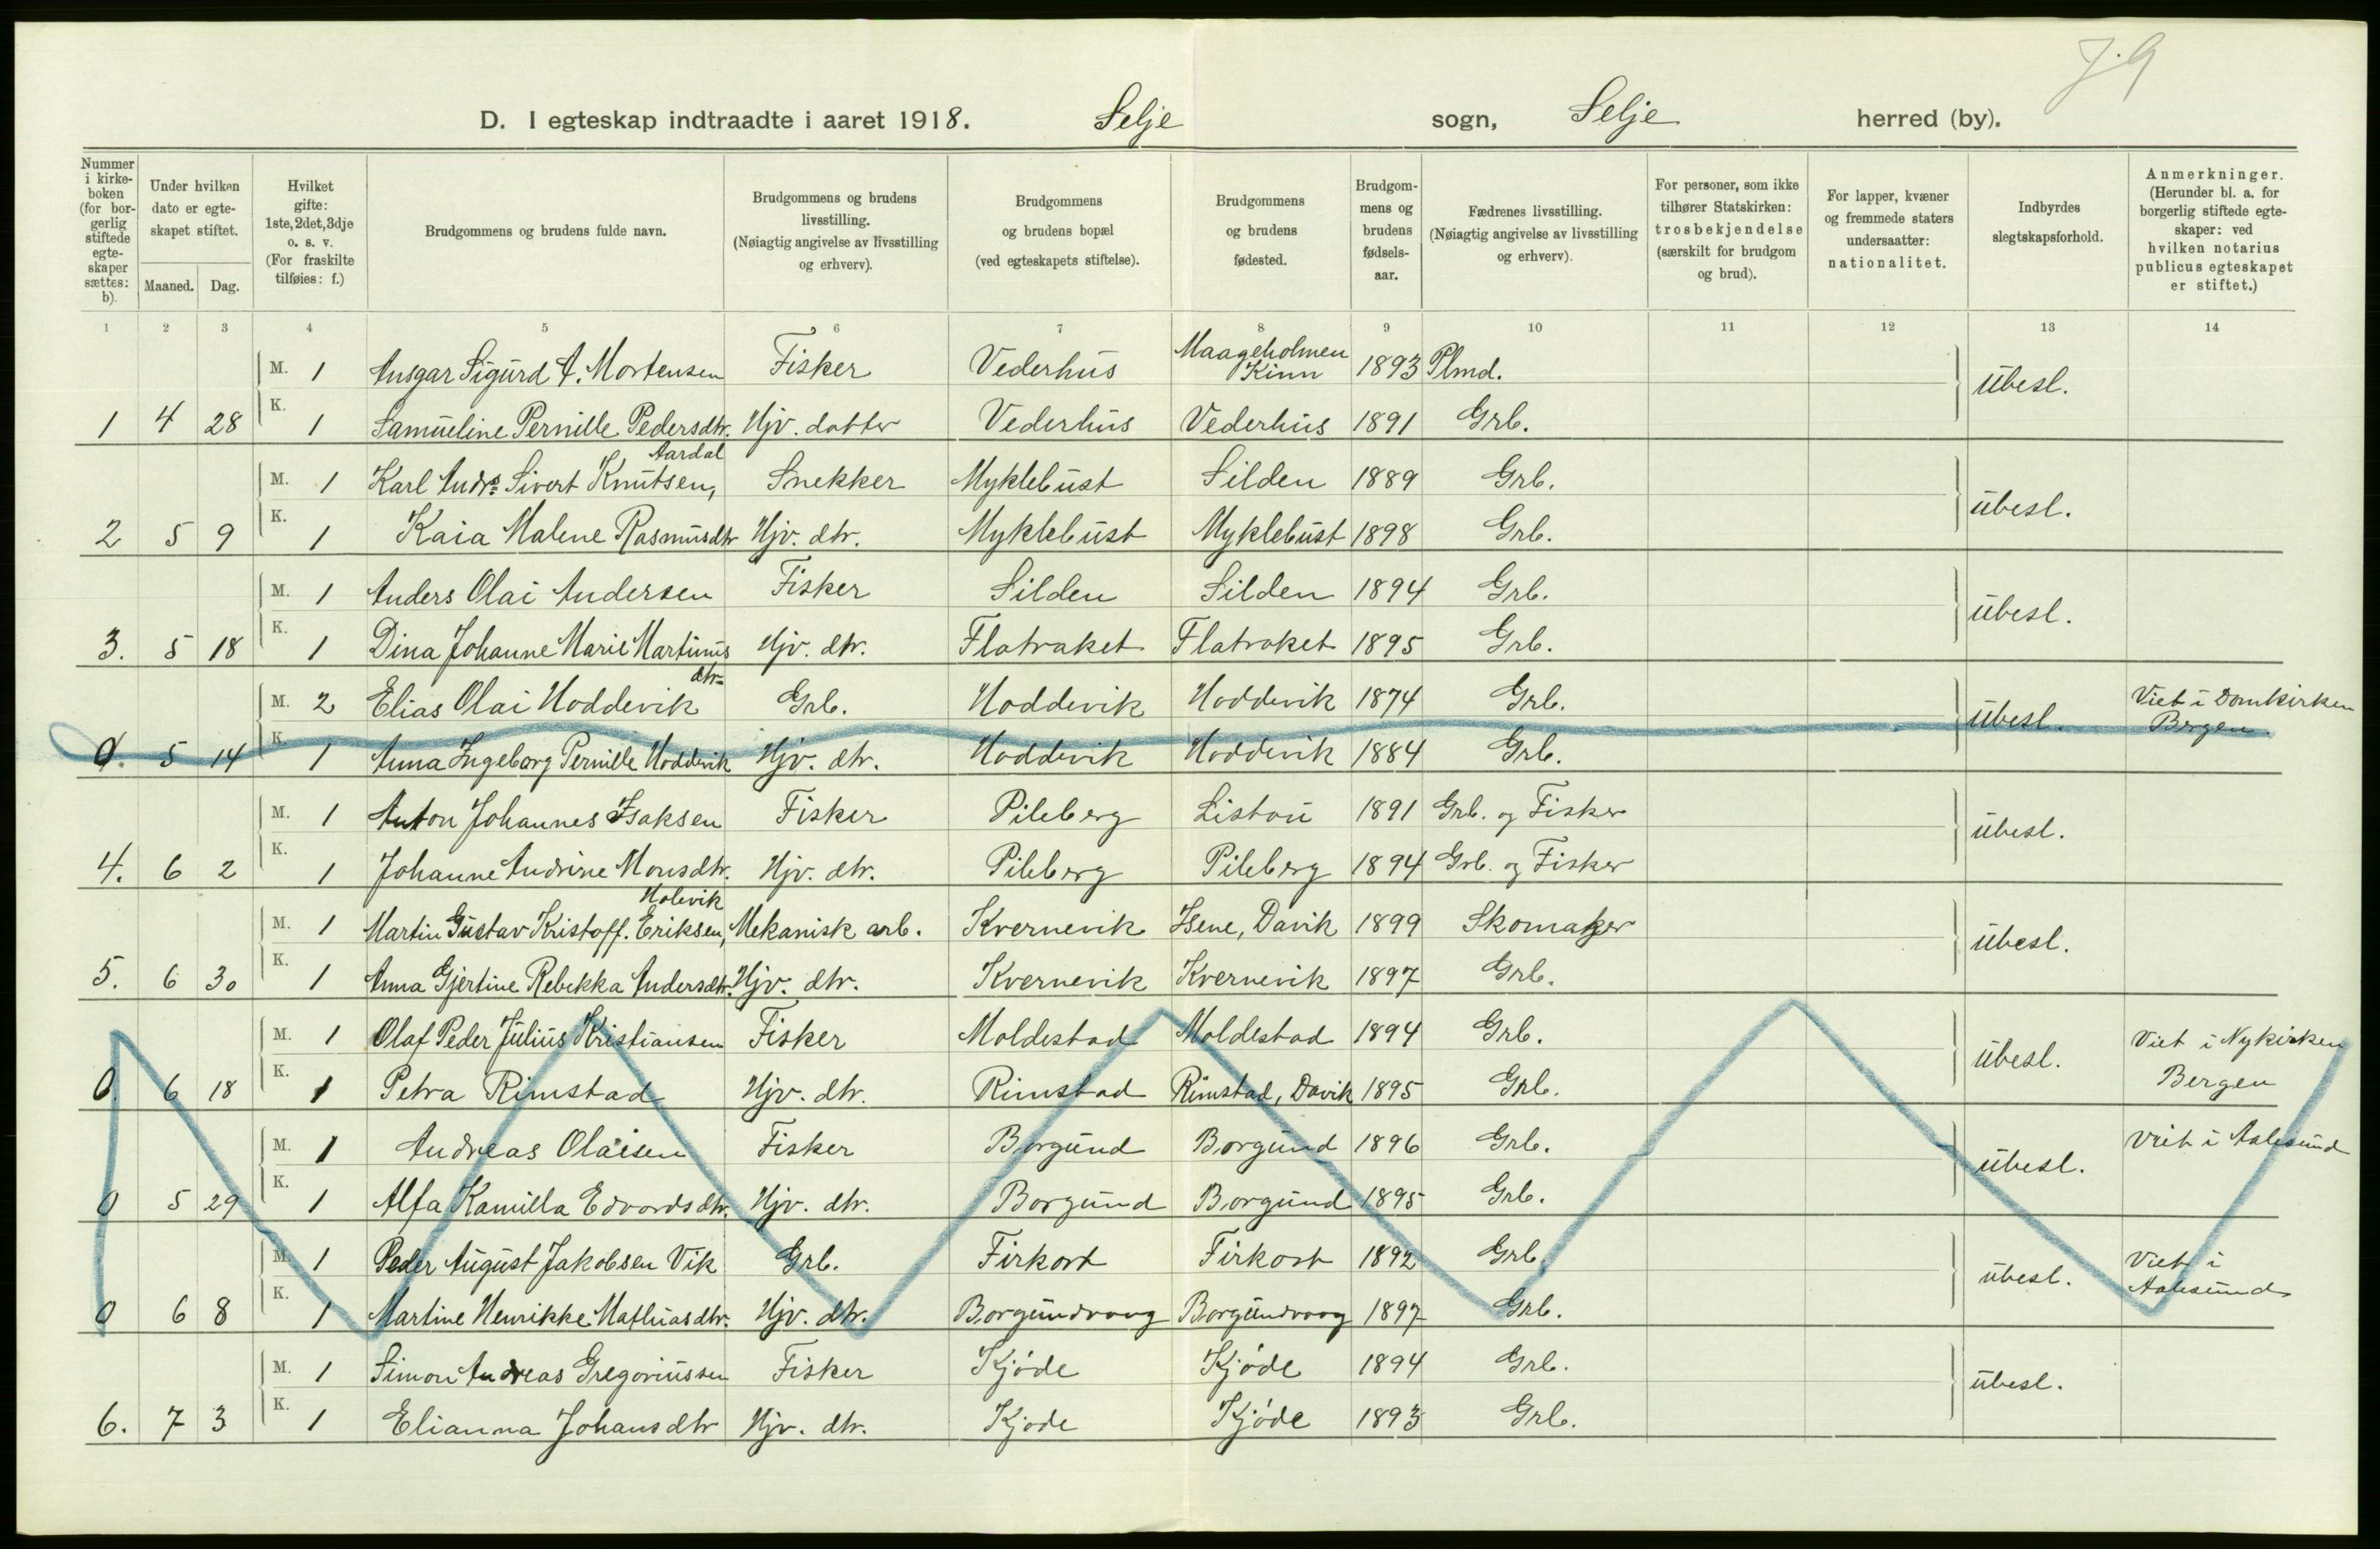 J.G
D. I egteskap indtraadte i aaret 1918. Selje sogn, Selje herred (by).
Nummer i kirke-boken (for bor-gerlig stiftede egte-skaper sættes: b).
Under hvilken dato er egte-skapet stiftet.
Maaned. Dag.
Hvilket gifte: 1ste, 2det, 3dje o. s. v. (For fraskilte tilføies: f.)
Brudgommens og brudens fulde navn.
Brudgommens og brudens livsstilling. (Nøiagtig angivelse av livsstilling og erhverv).
Brudgommens og brudens bopæl (ved egteskapets stiftelse).
Brudgommens og brudens fødested.
Brudgom-mens og brudens fødsels-aar.
Fædrenes livsstilling. (Nøiagtig angivelse av livsstilling og erhverv).
For personer, som ikke tilhører Statskirken: trosbekjendelse (særskilt for brudgom og brud).
For lapper, kvæner og fremmede staters undersaatter: nationalitet.
Indbyrdes slegtskapsforhold.
Anmerkninger. (Herunder bl. a. for borgerlig stiftede egte-skaper: ved hvilken notarius publicus egteskapet er stiftet.)
1 2 3 4 5 6 7 8 9 10 11 12 13 14
M. 1 Ansgar Sigurd A. Mortensen Fisker Vederhus Maageholmen Kinn 1893 Plmd. übesl.
1 4 28 K. 1 Samueline Pernille Pedersdtr. Hjv. datter Vederhus Vederhus 1891 Grb.
M. 1 Karl Andrs. Sivert Knutsen, Aardal Snekker Myklebust Silden 1889 Grb. übesl.
2 5 9 K. 1 Kaia Malene Rasmusdtr Hjv. dtr. Myklebust Myklebust 1898 Grb.
M. 1 Anders Olai Andersen Fisker Silden Silden 1894 Grb. übesl.
3. 5 18 K. 1 Dina Johanne Marie Martinusdtr Hjv. dtr. Flatraket Flatraket 1895 Grb.
M. 2 Elias Olai Hoddevik Grb. Hoddevik Hoddevik 1874 Grb. übesl. Viet i Domkirken Bergen.
0. 5 14 K. 1 Anna Ingeborg Pernille Hoddevik Hjv. dtr. Hoddevik Hoddevik 1884 Grb.
M. 1 Anton Johannes Isaksen Fisker Pileberg Listau 1891 Grb. og Fisker übesl.
4. 6 2 K. 1 Johanne Andrine Monsdtr. Hjv. dtr. Pileberg Pileberg 1894 Grb. og Fisker
M. 1 Martin Gustav Kristoff. Eriksen, Holevik Mekanisk arb. Kvernevik Isene, Davik 1899 Skomaker übesl.
5. 6 30 K. 1 Anna Gjertine Rebekka Andersdtr. Hjv. dtr. Kvernevik Kvernevik 1897 Grb.
M. 1 Olaf Peder Julius Kristiansen Fisker Moldestad Moldestad 1894 Grb. übesl. Viet i Nykirken
0. 6 18 K. 1 Petra Rimstad Hjv. dtr. Rimstad Rimstad, Davik 1895 Grb. Bergen
M. 1 Andreas Olaisen Fisker Borgund Borgund 1896 Grb. übesl. Viet i Aalesund
0 5 29 K. 1 Alfa Kamilla Edvardsdtr. Hjv. dtr. Borgund Borgund 1895 Grb.
M. 1 Peder August Jakobsen Vik Grb. Firkost Firkost 1892 Grb. übesl. Viet i Aalesund
0 6 8 K. 1 Martine Henrikke Mathiasdtr. Hjv. dtr. Borgundvaag Borgundvaag 1897 Grb.
M. 1 Simon Andreas Gregoriussen Fisker Kjøde Kjøde 1894 Grb. übesl.
6. 7 3 K. 1 Elianna Johansdtr Hjv. dtr. Kjøde Kjøde 1893 Grb.